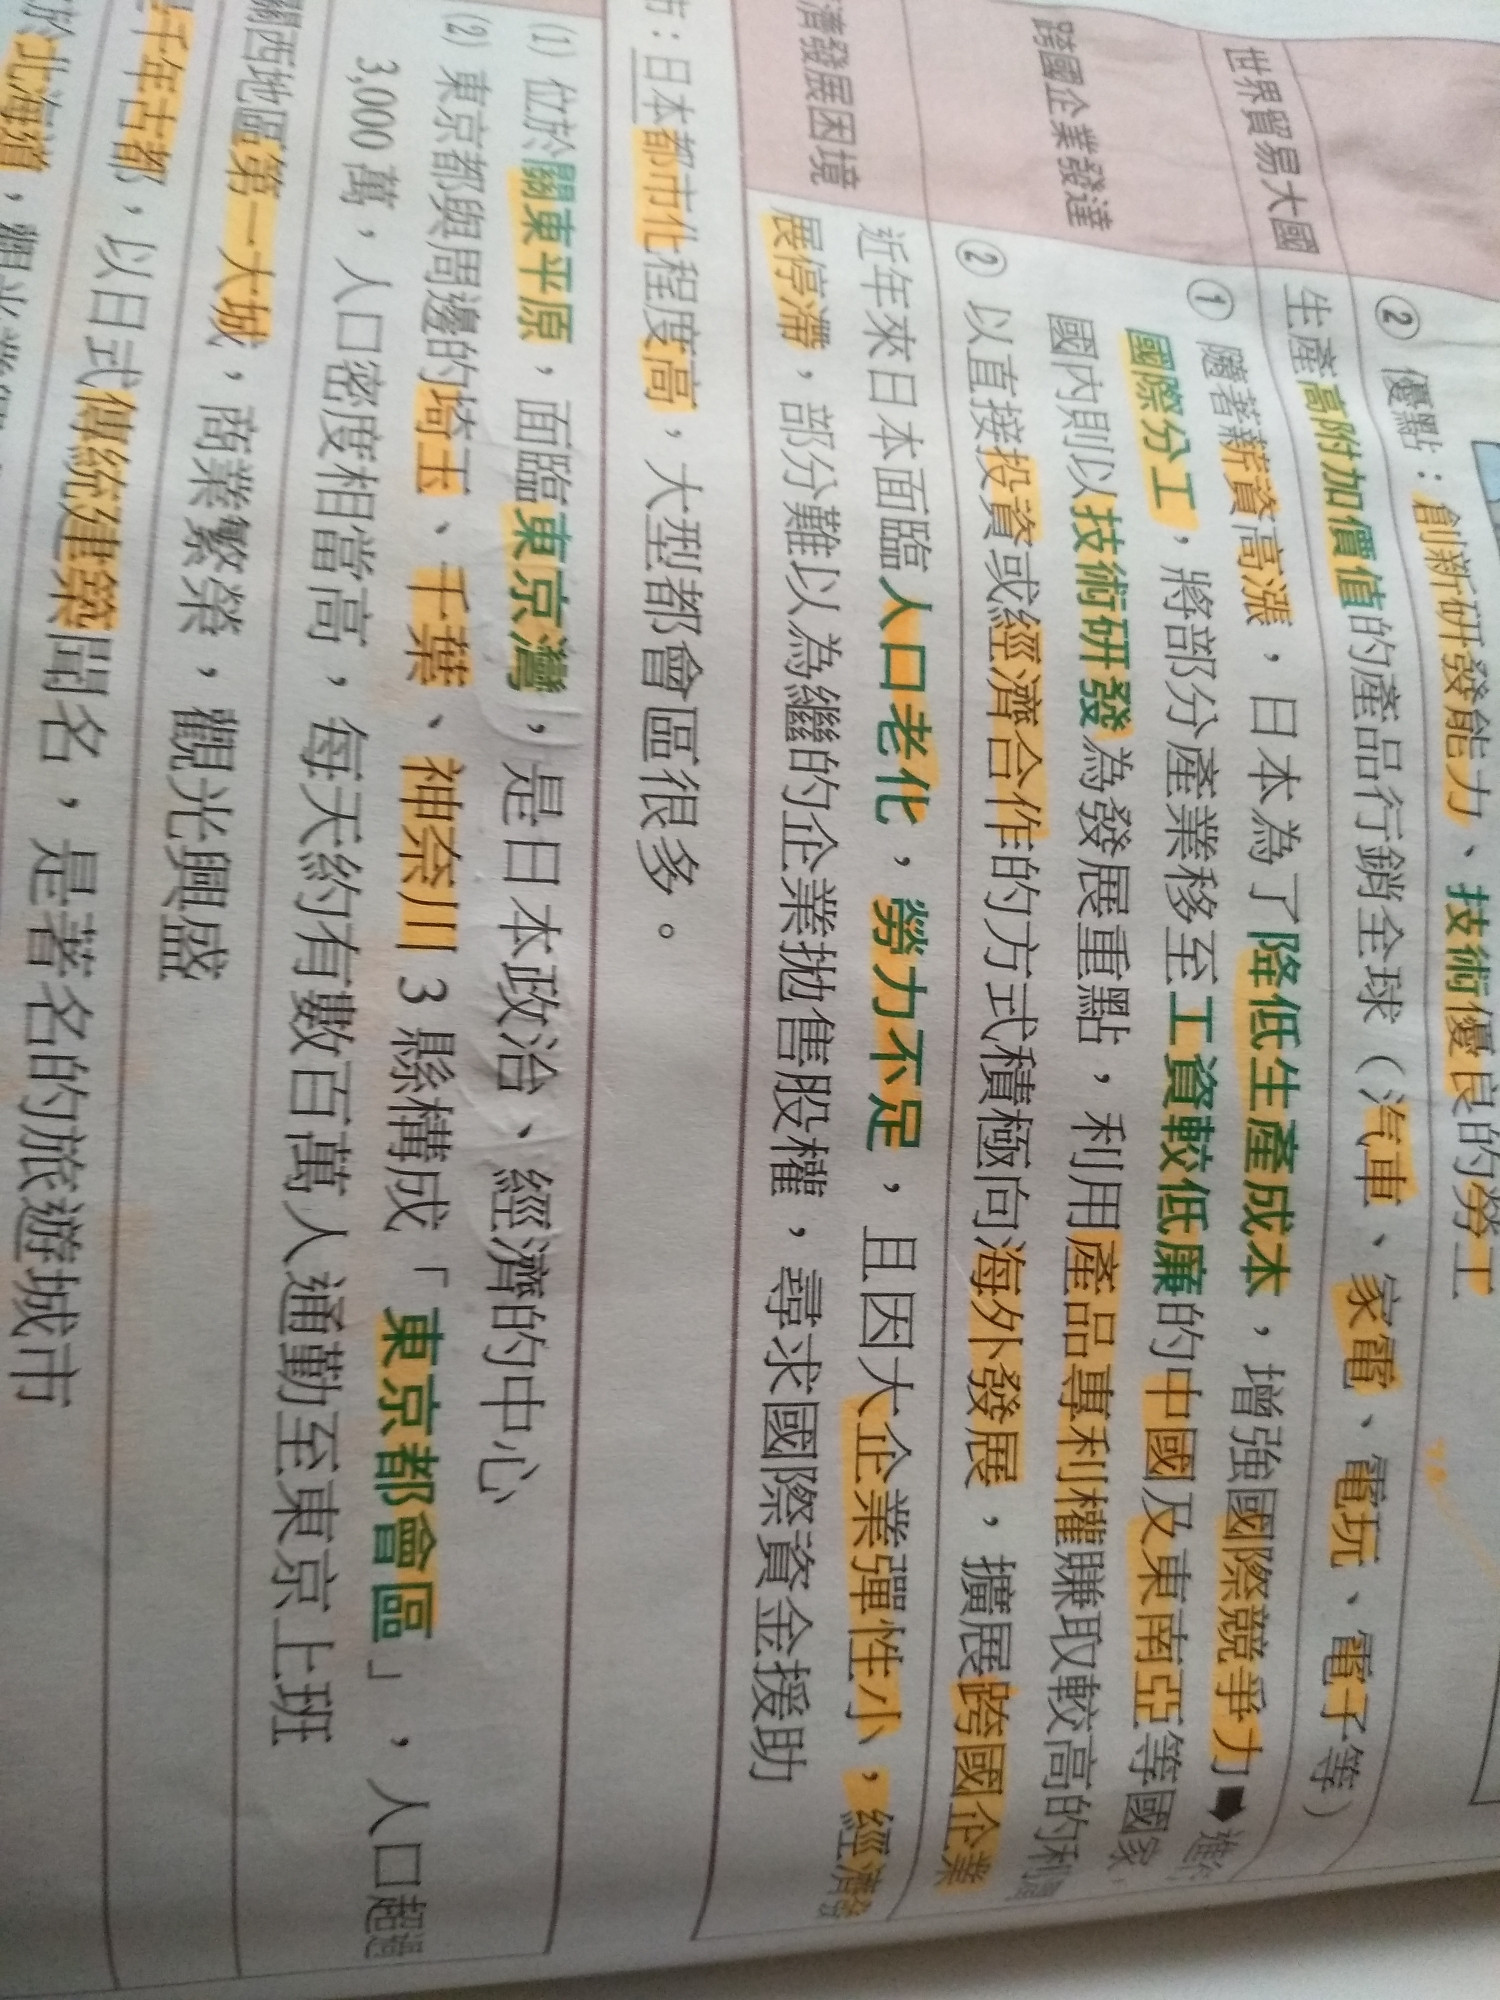 ② 優點：創新研發能力、技術優良的勞工
世界貿易大國
生產高附加價值的產品行銷全球（汽車、家電、電玩、電子等）
跨國企業發達
① 隨著薪資高漲，日本為了降低生產成本，增強國際競爭力➡進行
國際分工，將部分產業移至工資較低廉的中國及東南亞等國家，
國內則以技術研發為發展重點，利用產品專利權賺取較高的利潤
② 以直接投資或經濟合作的方式積極向海外發展，擴展跨國企業
濟發展困境
近年來日本面臨人口老化，勞力不足，且因大企業彈性小，經濟發
展停滯，部分難以為繼的企業拋售股權，尋求國際資金援助
市：日本都市化程度高，大型都會區很多。
(1) 位於關東平原，面臨東京灣，是日本政治、經濟的中心
(2) 東京都與周邊的埼玉、千葉、神奈川 3 縣構成「東京都會區」，人口超過
3,000 萬，人口密度相當高，每天約有數百萬人通勤至東京上班
關西地區第一大城，商業繁榮，觀光興盛
千年古都，以日式傳統建築聞名，是著名的旅遊城市
於北海道，